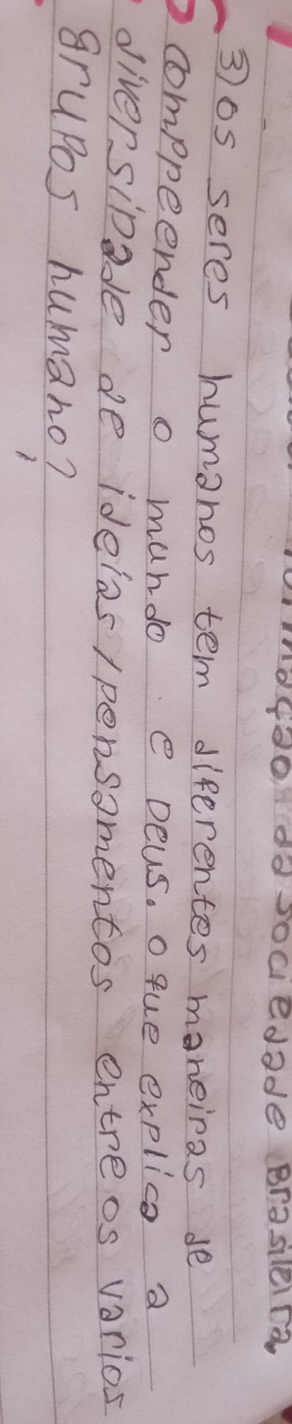 da sociedade Brasileira,
3) os seres humanos tem diferentes maneiras de
compreender o mundo e Deus. o que explica a
diversidade de ideias/pensamentos entre os varios
grupos humano?